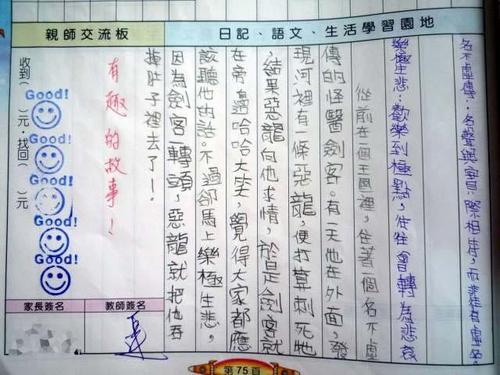 日記、語文、生活學習園地
名不虛傳：名聲與實際相符，而非徒有虛名。
樂極生悲：歡樂到極點，往往會轉為悲哀
從前在一個王國裡，住著一個名不虛
傳的怪醫劍客。有一天他在外面，發
現河裡有一條惡龍，便打算刺死牠
，結果惡龍向他求情，於是劍客就
在旁邊哈哈大笑，覺得大家都應
該聽他的話。不過卻馬上樂極生悲，
因為劍客一轉頭，惡龍就把他吞
掉肚子裡去了！
親師交流板
有趣的故事！
收到( )元，找回( )元
Good!
Good!
Good!
Good!
Good!
家長簽名
教師簽名
第75頁